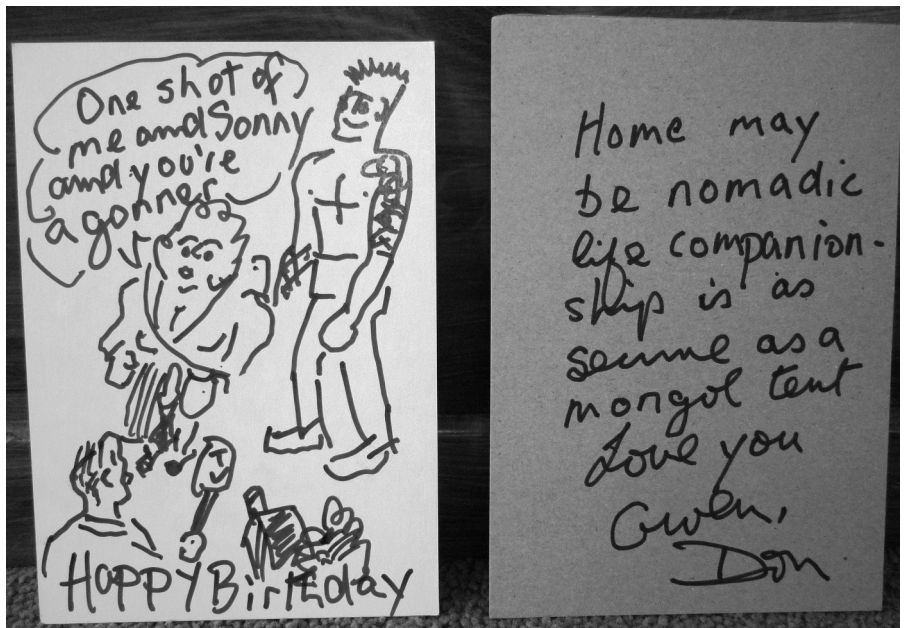 One shot of
me and Sonny
and you're
a gonner
Happy Birthday
Home may
be nomadic
life companion-
ship is as
secure as a
mongol tent
Love you
Gwen,
Don